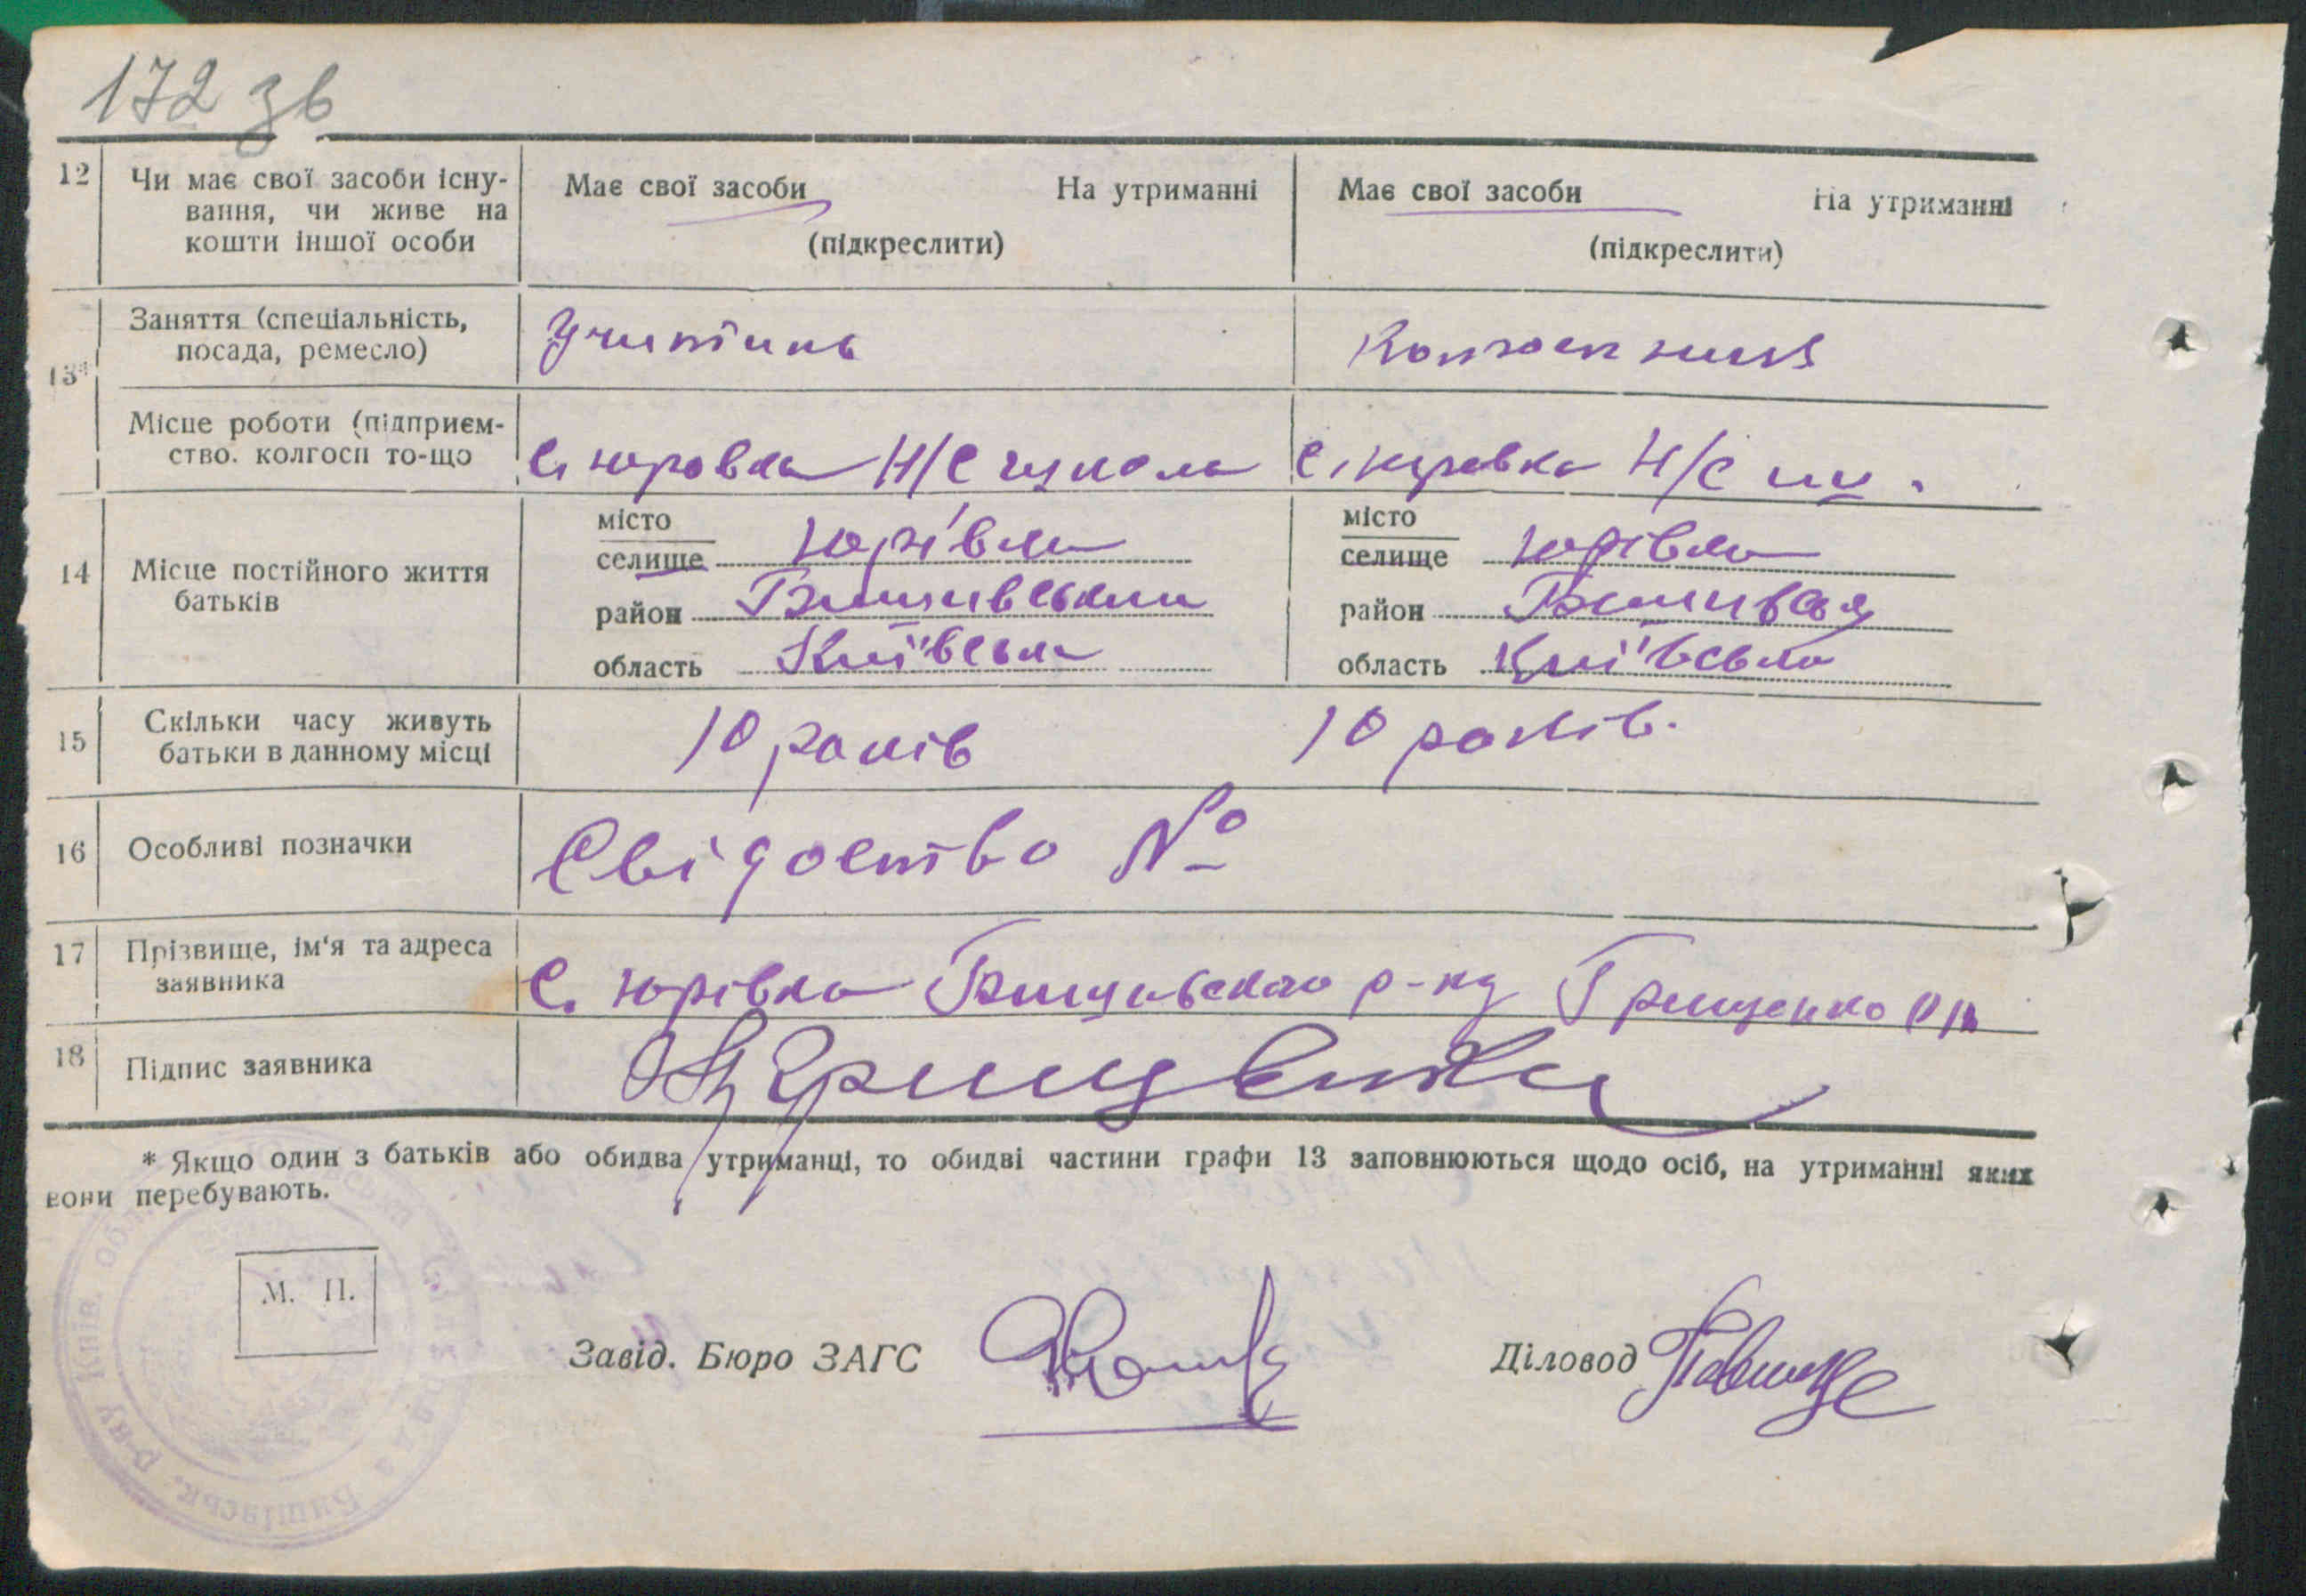 172 зв
12 Чи має свої засоби існу-
вання, чи живе на
кошти іншої особи
Має свої засоби На утриманні
(підкреслити)
Має свої засоби На утриманні
(підкреслити)
13*
Заняття (спеціальність,
посада, ремесло)
Учитель
Колгоспниця
Місце роботи (підприєм-
ство. колгосп то-що
с. Юровка Н/С школа
с. Юровка Н/С шк.
14 Місце постійного життя
батьків
місто
селище Юрівка
район Бишівський
область Київська
місто
селище Юрівка
район
область Київська
15 Скільки часу живуть
батьки в данному місці
10 років
10 років.
16 Особливі позначки
Свідоство №
17 Прізвище, ім'я та адреса
заявника
с. Юрівка р-ну Грищенко
18 Підпис заявника
Грищенко
* Якщо один з батьків або обидва утриманці, то обидві частини графи 13 заповнюються щодо осіб, на утриманні яких
вони перебувають.
М. П.
Завід. Бюро ЗАГС
Діловод
Бишівськ. р-ну Київ. об